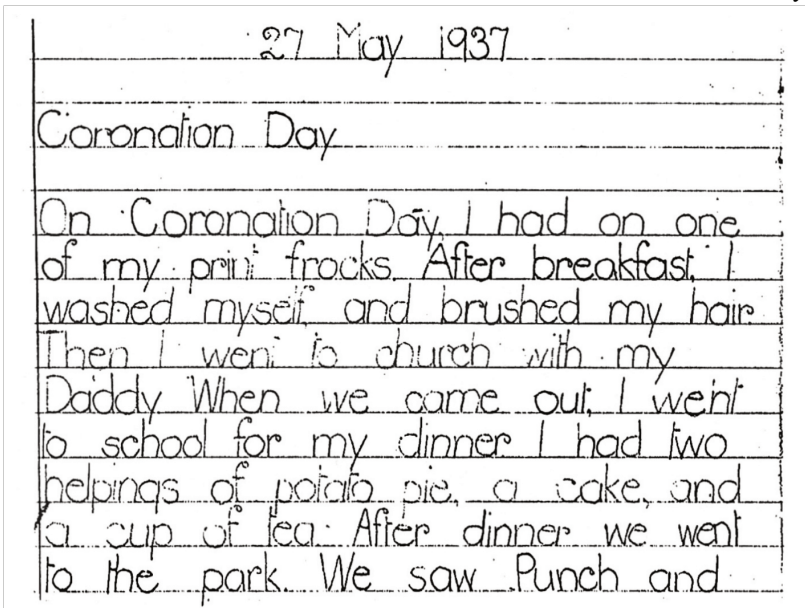 27 May 1937
Coronation Day
On Coronation Day, I had on one
of my print frocks. After breakfast, I
washed myself, and brushed my hair.
Then I went to church with my
Daddy When we came out, I went
to school for my dinner I had two
helpings of potato pie, a cake, and
a cup of tea. After dinner we went
to the park. We saw Punch and